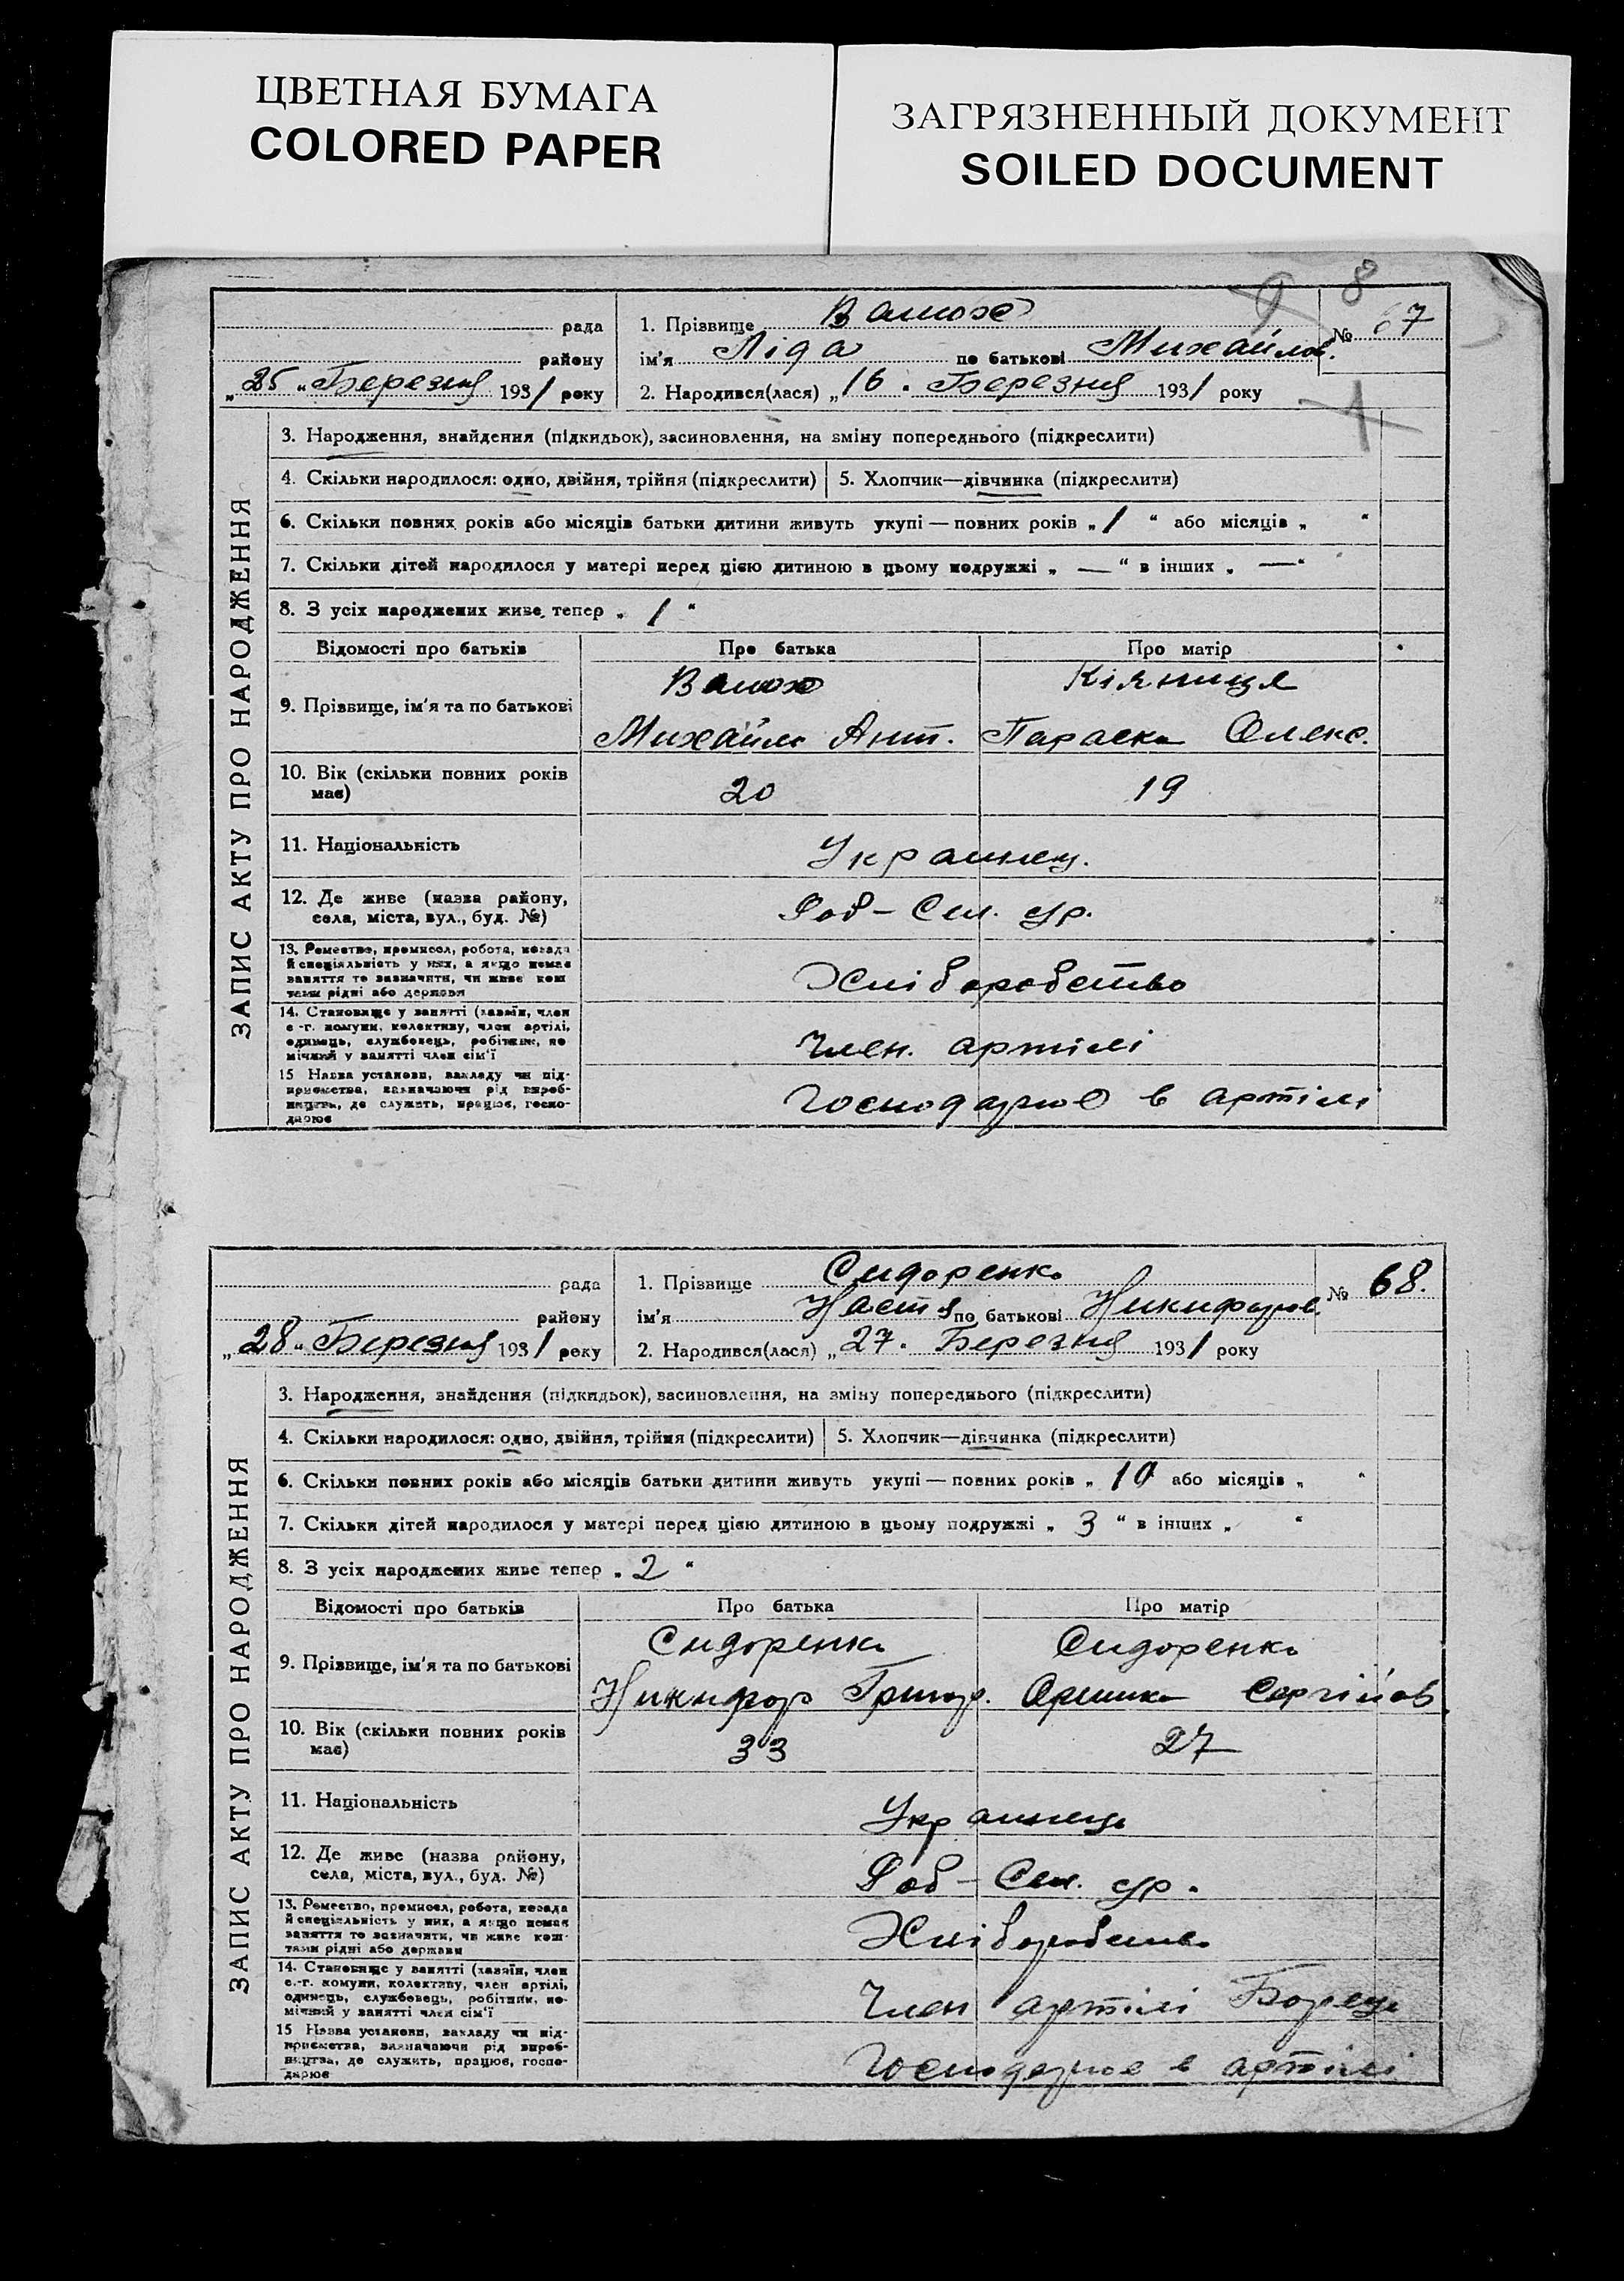 ЦВЕТНАЯ БУМАГА
COLORED PAPER
ЗАГРЯЗНЕННЫЙ ДОКУМЕНТ
SOILED DOCUMENT
8
рада
району
„25„ Березня 1931 року
1. Прізвище
ім'я Ліда по батькові Михайлов.
2. Народився(лася) „16. Березня 1931 року
№ 67
ЗАПИС АКТУ ПРО НАРОДЖЕННЯ
3. Народження, знайдення (підкидьок), засиновлення, на зміну попереднього (підкреслити)
4. Скільки народилося: одно, двійня, трійня (підкреслити)
5. Хлопчик—дівчинка (підкреслити)
6. Скільки повних років або місяців батьки дитини живуть укупі — повних років „ 1 “ або місяців „ “
7. Скільки дітей народилося у матері перед цією дитиною в цьому подружжі „ — “ в інших „ — “
8. З усіх народжених живе тепер „ 1 “
Відомості про батьків
Про батька
Про матір
9. Прізвище, ім'я та по батькові
Михайло Ант.
Кіяниця
Параска Олекс.
10. Вік (скільки повних років має)
20
19
11. Національність
Украинец.
12. Де живе (назва району, села, міста, вул., буд. №)
Роб-Сел. ур.
13. Ремество, промисел, робота, посада й спеціяльність у них, а якщо немає заняття то зазначити, чи живе коштами рідні або держави
Хліборобство
14. Становище у занятті (хазяїн, член с.-г. комуни, колективу, член артілі, одинець, службовець, робітник, помічний у занятті член сім'ї
Член. артілі
15 Назва установи, закладу чи підприємства, зазначаючи рід виробництва, де служить, працює, господарює
Господарює в артілі
рада
району
„28„ Березня 1931 року
1. Прізвище Сидоренко
ім'я Настя по батькові Никифоров.
2. Народився(лася) „27. Березня 1931 року
№ 68.
ЗАПИС АКТУ ПРО НАРОДЖЕННЯ
3. Народження, знайдення (підкидьок), засиновлення, на зміну попереднього (підкреслити)
4. Скільки народилося: одно, двійня, трійня (підкреслити)
5. Хлопчик—дівчинка (підкреслити)
6. Скільки повних років або місяців батьки дитини живуть укупі — повних років „ 10 або місяців „ “
7. Скільки дітей народилося у матері перед цією дитиною в цьому подружжі „ 3 “ в інших „ “
8. З усіх народжених живе тепер „ 2 “
Відомості про батьків
Про батька
Про матір
9. Прізвище, ім'я та по батькові
Сидоренко
Никифор Григор.
Сидоренко
Оришка Сергійов
10. Вік (скільки повних років має)
33
27
11. Національність
Украинець
12. Де живе (назва району, села, міста, вул., буд. №)
Роб-Сел. ур.
13. Ремество, промисел, робота, посада й спеціяльність у них, а якщо немає заняття то зазначити, чи живе коштами рідні або держави
Хліборобство
14. Становище у занятті (хазяїн, член с.-г. комуни, колективу, член артілі, одинець, службовець, робітник, помічний у занятті член сім'ї
Член артілі Борець
15 Назва установи, закладу чи підприємства, зазначаючи рід виробництва, де служить, працює, господарює
Господарює в артілі